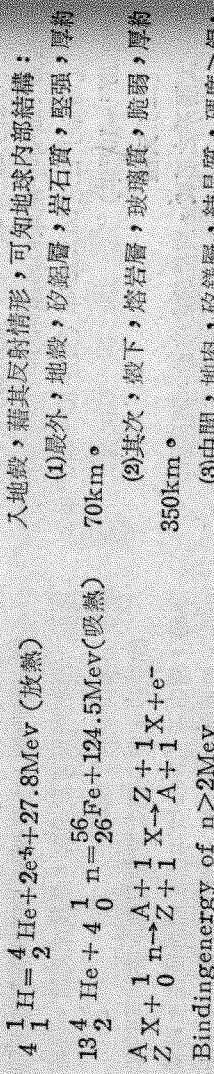 4 ¹₁H=⁴₂He+2e⁺+27.8Mev (放熱)
13 ⁴₂He+4 ¹₀n=⁵⁶₂₆Fe+124.5Mev(吸熱)
ᴬ_Z X+¹₀n→ᴬ⁺¹_Z+1 X→ᶻ⁺¹_A+1 X+e⁻
Bindingenergy of n>2Mev
入地殼,藉其反射情形,可知地球內部結構:
(1)最外,地殼,矽鋁層,岩石質,堅強,厚約
70km。
(2)其次,殼下,熔岩層,玻璃質,脆弱,厚約
350km。
(3)中間,地肉,矽鎂層,結晶質,硬度